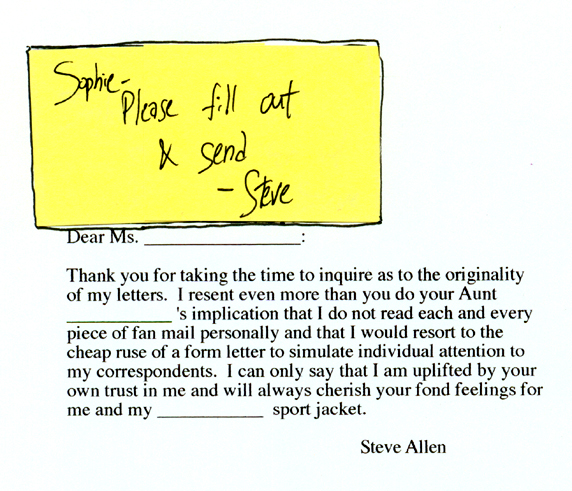 Sophie-
Please fill out
& send
- Steve
Dear Ms. __________________:
Thank you for taking the time to inquire as to the originality
of my letters. I resent even more than you do your Aunt
____________ 's implication that I do not read each and every
piece of fan mail personally and that I would resort to the
cheap ruse of a form letter to simulate individual attention to
my correspondents. I can only say that I am uplifted by your
own trust in me and will always cherish your fond feelings for
me and my ____________ sport jacket.
Steve Allen